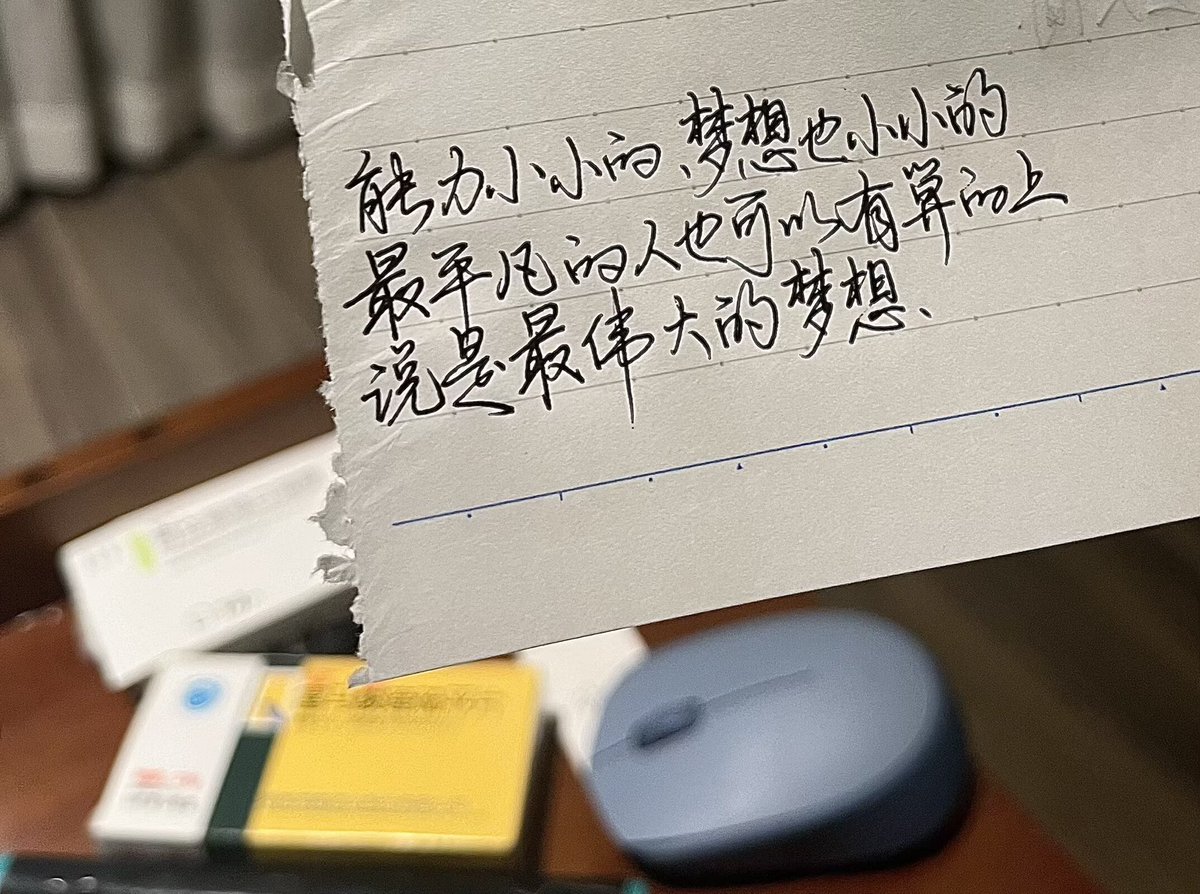 能力小小的、梦想也小小的
最平凡的人也可以有算的上
说是最伟大的梦想、